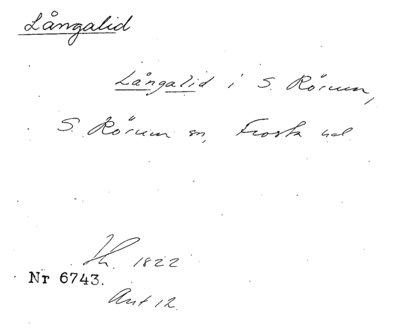 Långalid
Långalid i S. Rörum,
S. Rörum sn, Frosta hd
1822
Nr 6743.
Ant 12.